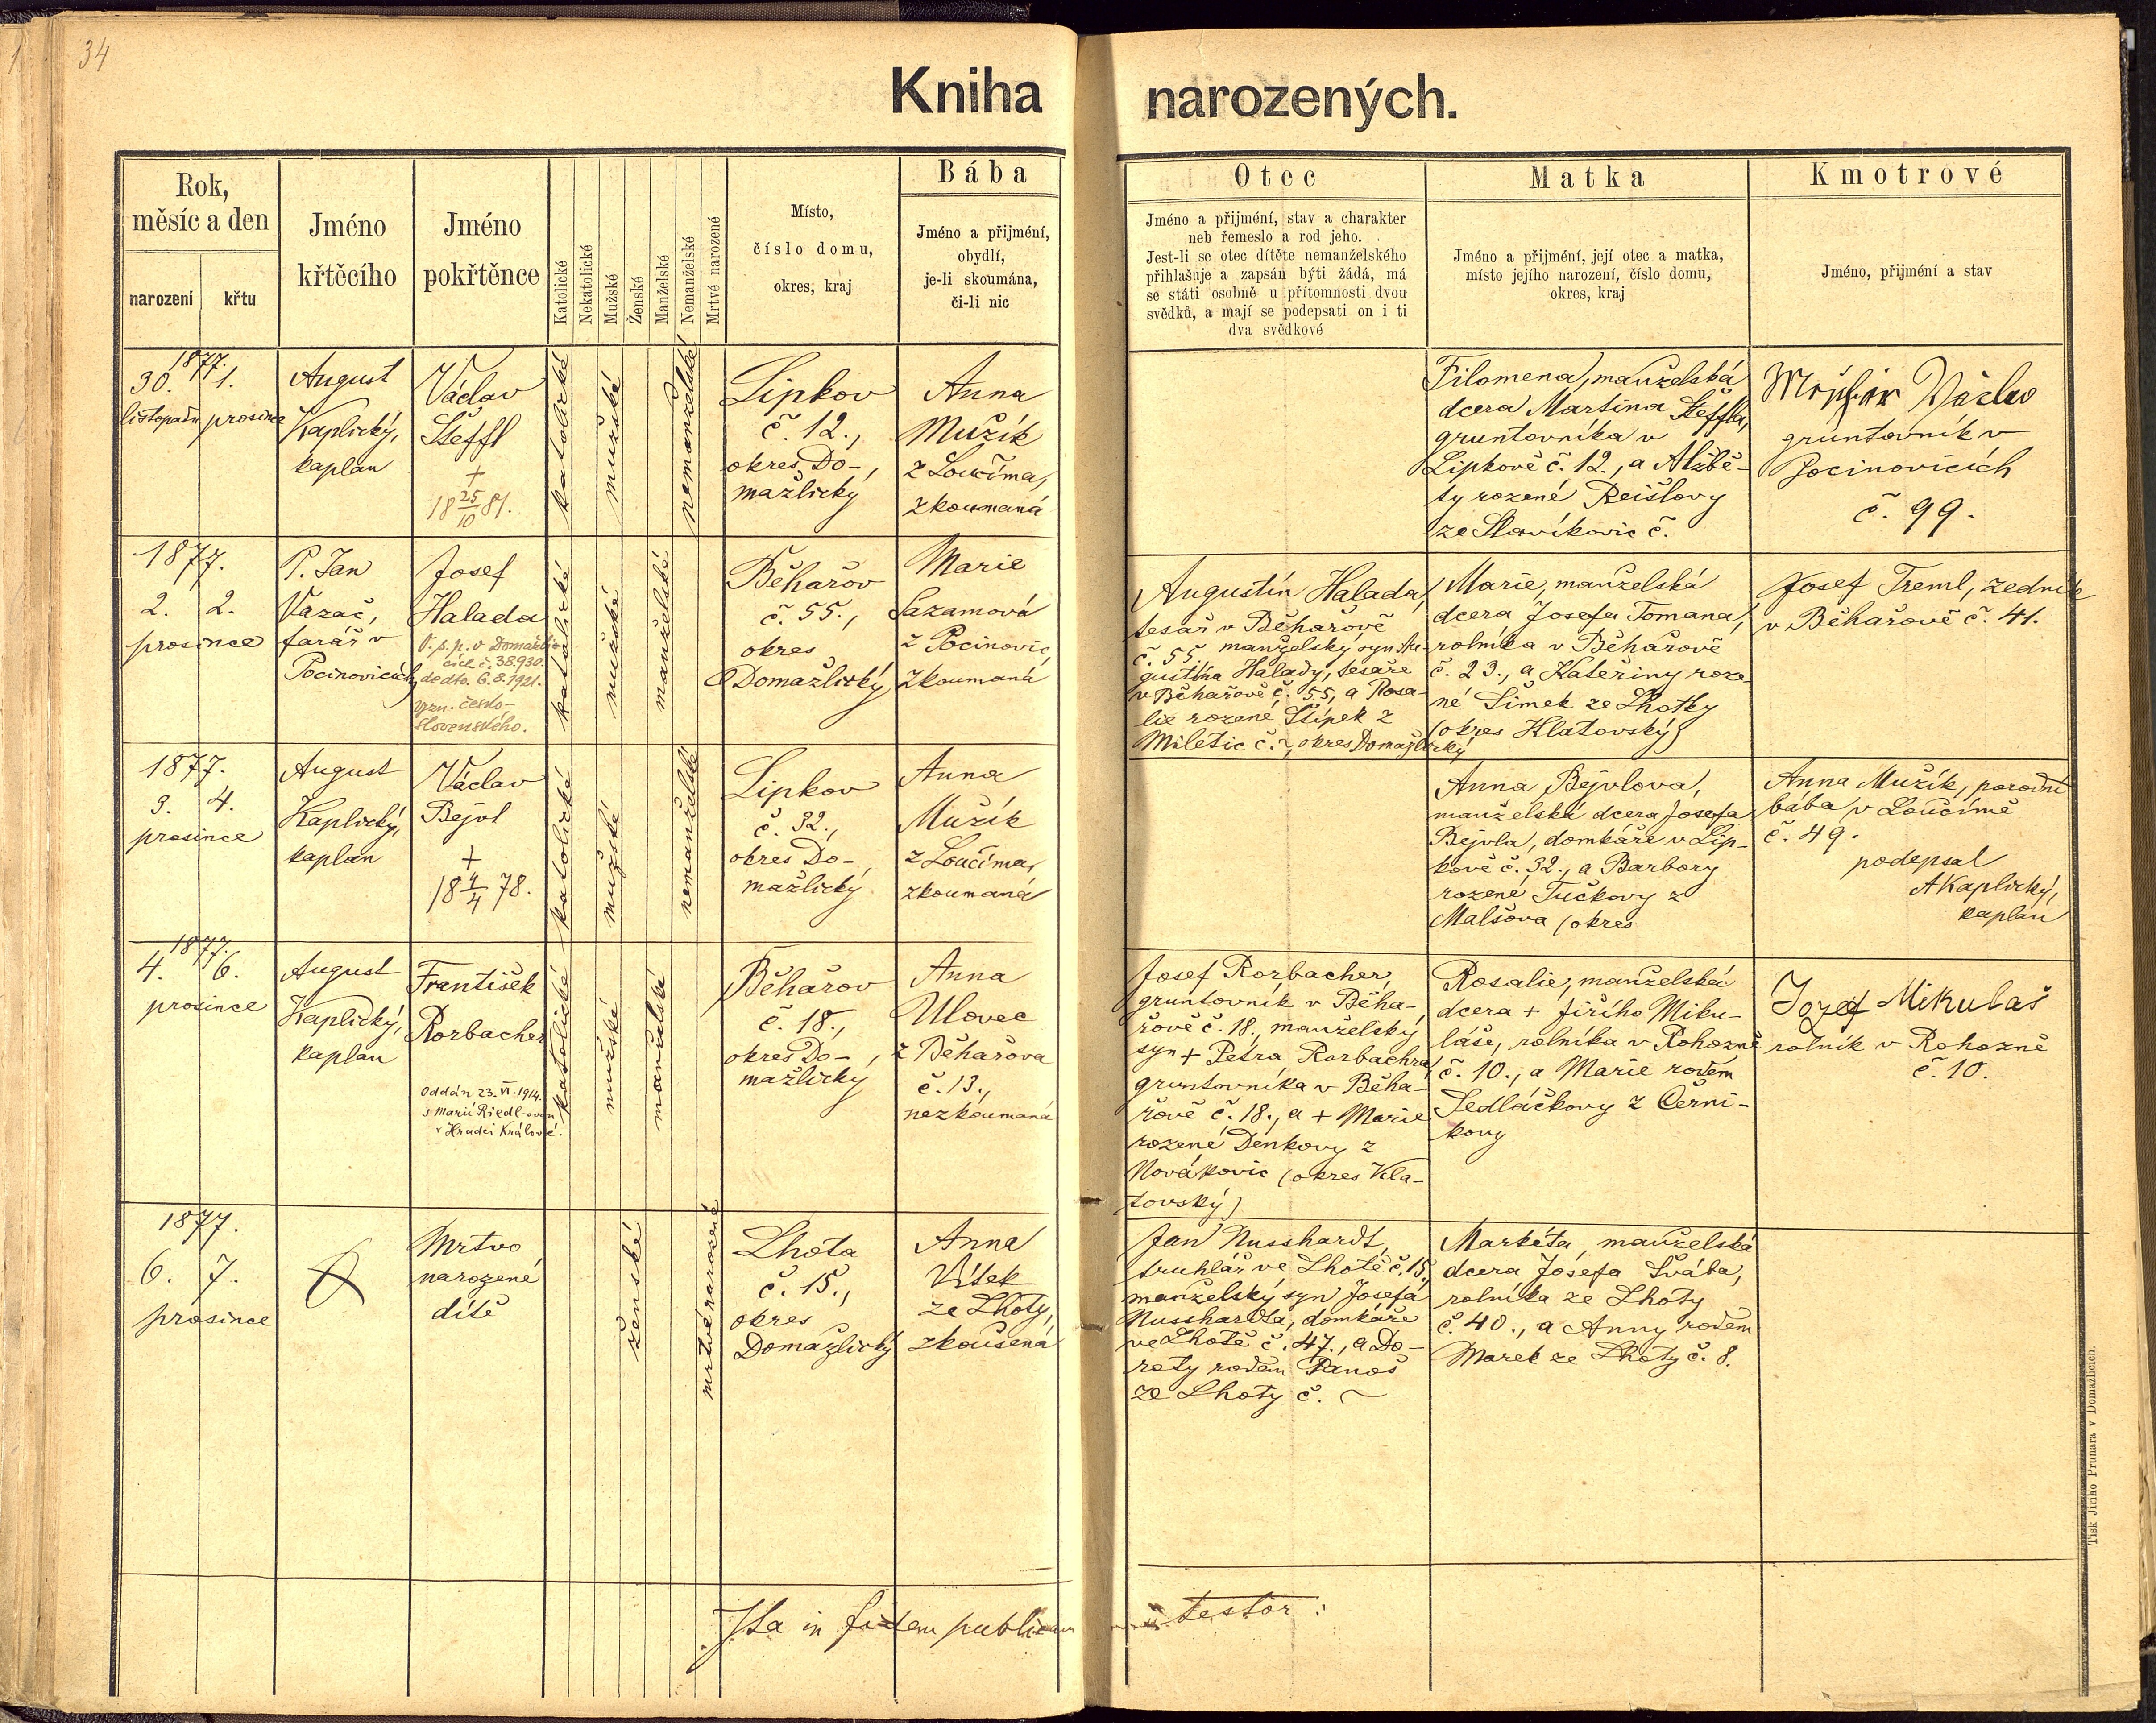 34
Kniha narozených.
Rok,
měsíc a den
narození
křtu
Jméno
křtěcího
Jméno
pokřtěnce
Katolické
Nekatolické
Mužské
Ženské
Manželské
Nemanželské
Mrtvé narozené
Místo,
číslo domu,
okres, kraj
Bába
Jméno a přijmení,
obydlí,
je-li skoumána,
či-li nic
Otec
Jméno a přijmení, stav a charakter
neb řemeslo a rod jeho.
Jest-li se otec dítěte nemanželského
přihlašuje a zapsán býti žádá, má
se státi osobně u přítomnosti dvou
svědků, a mají se podepsati on i ti
dva svědkové
Matka
Jméno a přijmení, její otec a matka,
místo jejího narození, číslo domu,
okres, kraj
Kmotrové
Jméno, přijmení a stav
1877.
30. 1.
listopadu prosince
August
Kaplický,
kaplan
Václav
Šteffl
+
18 25/10 81.
katolické
mužské
nemanželské
Lipkov
č. 12.,
okres Do-
mažlický
Anna
Mužík
z Loučíma,
zkoumaná
Filomena, manželská
dcera Martina Šteffla,
gruntovníka v
Lipkově č. 12., a Alžbě-
ty rozené Reišlovy
ze Slavíkovic č.
Václav
gruntovník v
Pocinovicích
č. 99.
1877.
2. 2.
prosince
P. Jan
Vazač,
farář v
Pocinovicích
Josef
Halada
V. s. p. v Domažli-
cích č. 38.930.
de dto. 6.8.1921.
vzn. česko-
slovenského.
katolické
mužské
manželské
Běhařov
č. 55.,
okres
Domažlický
Marie
Sazamová
z Pocinovic,
zkoumaná
Augustin Halada,
tesař v Běhařově
č. 55 manželský syn Au-
gustina Halady, tesaře
v Běhařově č. 55, a Rosa-
lie rozené Štípek z
Miletic č. ~, okres Domažlický
Marie, manželská
dcera Josefa Tomana,
rolníka v Běhařově
č. 23., a Kateřiny roze-
né Šimek ze Lhotky
(okres Klatovský)
Josef Treml, zedník
v Běhařově č. 41.
1877.
3. 4.
prosince
August
Kaplický,
kaplan
Václav
Bejvl
+
18 4/4 78.
katolické
mužské
nemanželské
Lipkov
č. 32.,
okres Do-
mažlický
Anna
Mužík
z Loučíma,
zkoumaná
Anna Bejvlova,
manželská dcera Josefa
Bejvla, domkáře v Lip-
kově č. 32., a Barbory
rozené Tučkovy z
Malšova (okres
Anna Mužík, porodní
bába v Loučímě
č. 49.
podepsal
AKaplický,
kaplan
1877.
4. 6.
prosince
August
Kaplický,
kaplan
František
Rorbacher
Oddán 23. VI. 1914.
s Marií Riedl-ovou
v Hradci Králové.
katolické
mužské
manželské
Běhařov
č. 18.,
okres Do-
mažlický
Anna
Ulovec
z Běhařova
č. 13.,
nezkoumaná
Josef Rorbacher,
gruntovník v Běha-
řově č. 18., manželský
syn + Petra Rorbachra,
gruntovníka v Běha-
řově č. 18., a + Marie
rozené Denkovy z
Novákovic (okres Kla-
tovský)
Rosalie, manželská
dcera + Jiřího Miku-
láše, rolníka v Rohozně
č. 10., a Marie rodem
Sedláčkovy z Černí-
kovy
Jozef Mikulaš
rolník v Rohozně
č. 10.
1877.
6. 7.
prosince
Mrtvo
narozené
dítě
ženské
mrtvé narozené
Lhota
č. 15.,
okres
Domažlický
Anna
Vítek
ze Lhoty,
zkoušená
Jan Nusshardt,
truhlář ve Lhotě č. 15.,
manželský syn Josefa
Nusshardta, domkáře
ve Lhotě č. 47., a Do-
roty rodem Panoš
ze Lhoty č. ~
Markéta, manželská
dcera Josefa Švába,
rolníka ze Lhoty
č. 40., a Anny rodem
Marek ze Lhoty č. 8.
Ita in fidem publicam testor:
Tisk Jiřího Prunara v Domažlicích.